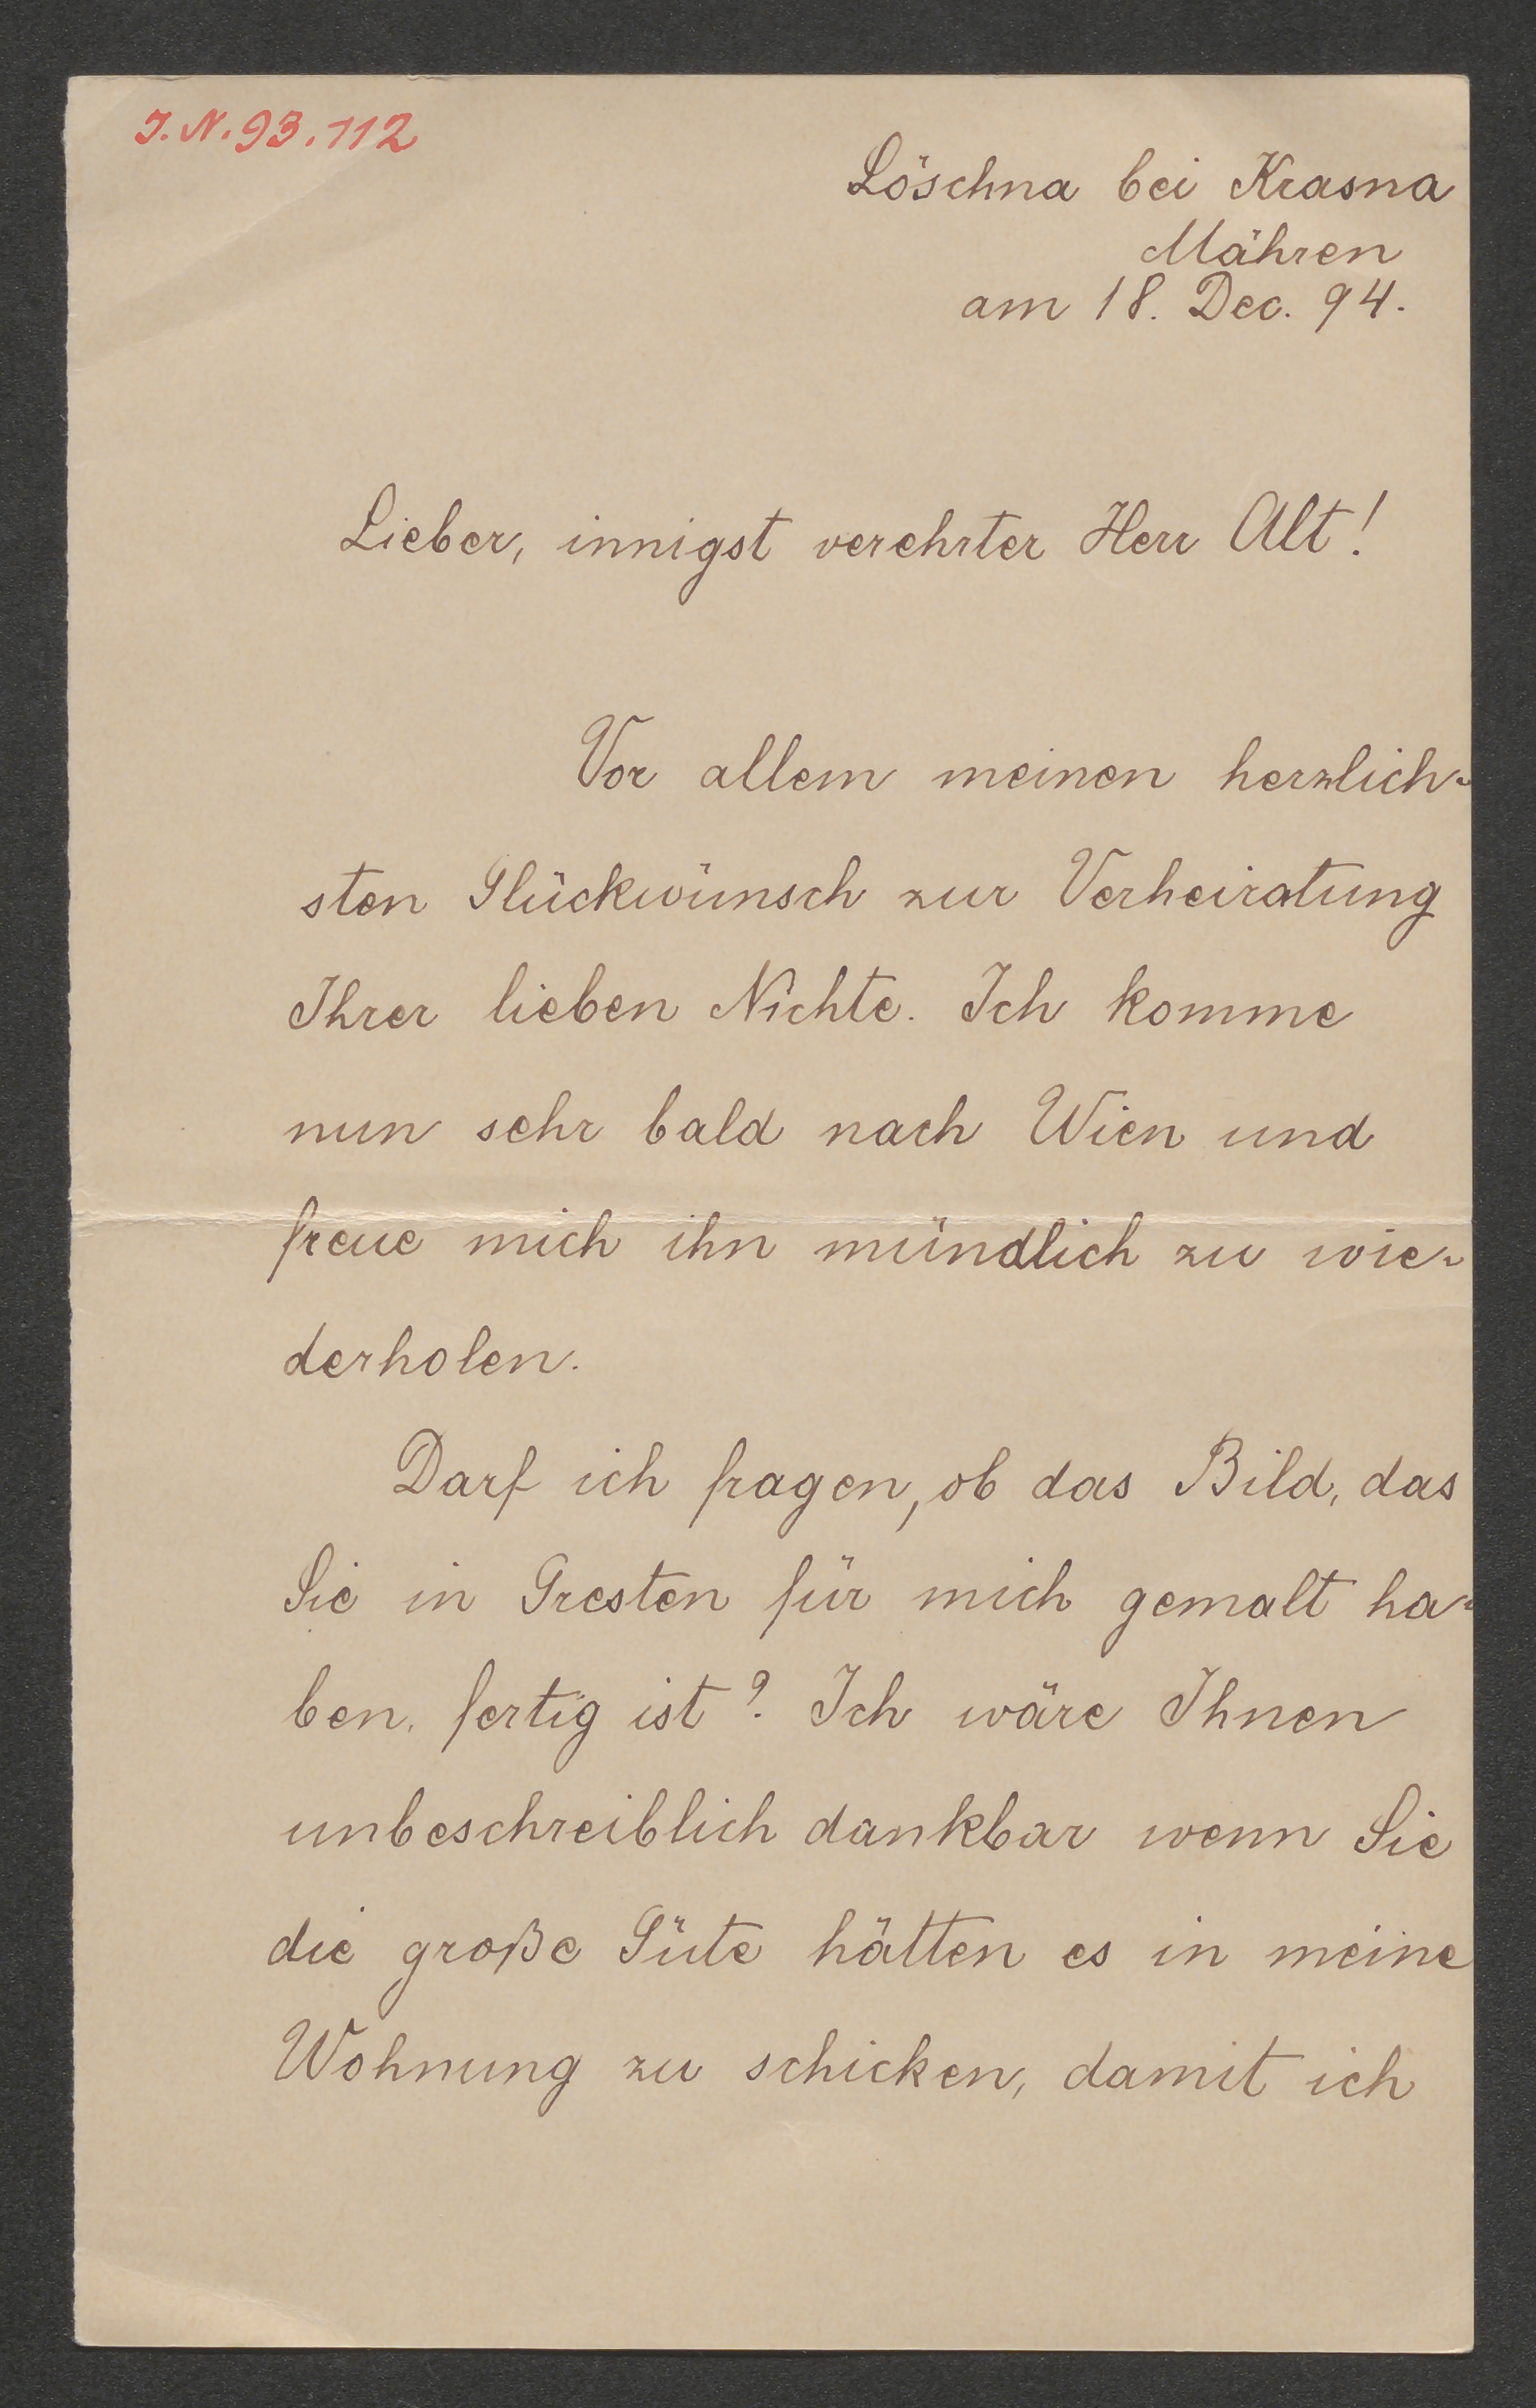 I. N. 93.112
Löschna bei Krasna
Mähren
am 18. Dec. 94.
Lieber, innigst verehrter Herr Alt!
Vor allem meinen herzlich-
sten Glückwünsch zur Verheiratung
Ihrer lieben Nichte. Ich komme
nun sehr bald nach Wien und
freue mich ihn mündlich zu wie-
derholen.
Darf ich fragen, ob das Bild, das
Sie in Gresten für mich gemalt ha-
ben, fertig ist? Ich wäre Ihnen
unbeschreiblich dankbar wenn Sie
die große Güte hätten es in meine
Wohnung zu schicken, damit ich